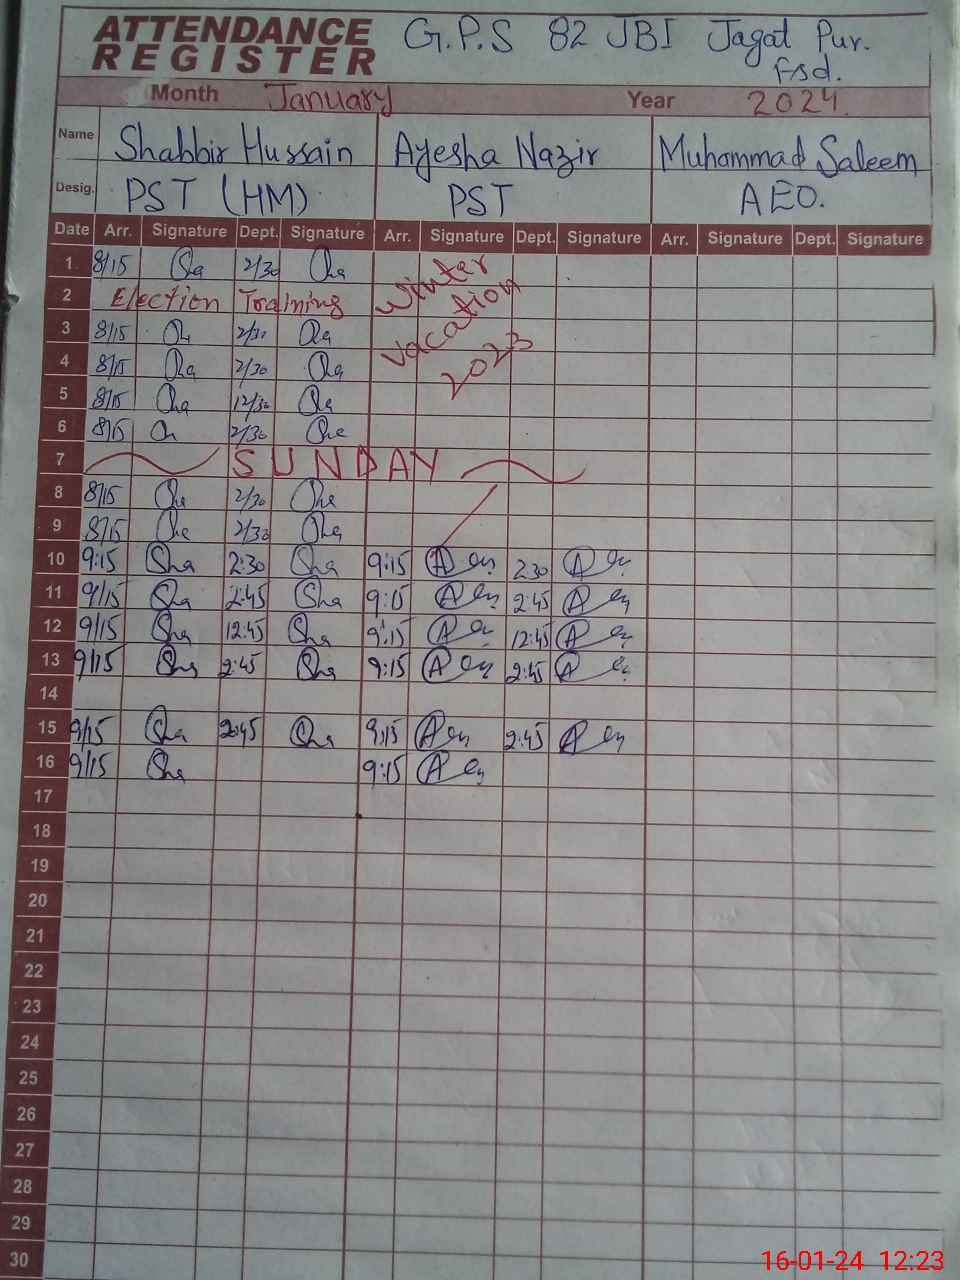 ATTENDANCE REGISTER G.P.S 82 JBI Jagat Pur. Fsd.
Month January Year 2024.
Name Shabbir Hussain Ayesha Nazir Muhammad Saleem
Desig. PST (HM). PST AEO.
Date Arr. Signature Dept. Signature Arr. Signature Dept. Signature Arr. Signature Dept. Signature
1 8/15 2/30 Winter
2 Election Training vacation
3 8/15 2/30 2023
4 8/15 2/30
5 8/15 12/30
6 8/15 2/30
7 SUNDAY
8 8/15 2/30
9 8/15 2/30
10 9:15 Sha 2:30 Sha 9:15 2:30
11 9/15 Sha 2:45 Sha 9:15 2:45
12 9/15 Sha 12:45 Sha 9:15 12:45
13 9/15 Sha 2:45 Sha 9:15 2:45
14
15 9/15 Sha 2:45 Sha 9:15 2:45
16 9/15 Sha 9:15
17
18
19
20
21
22
23
24
25
26
27
28
29
30
16-01-24 12:23